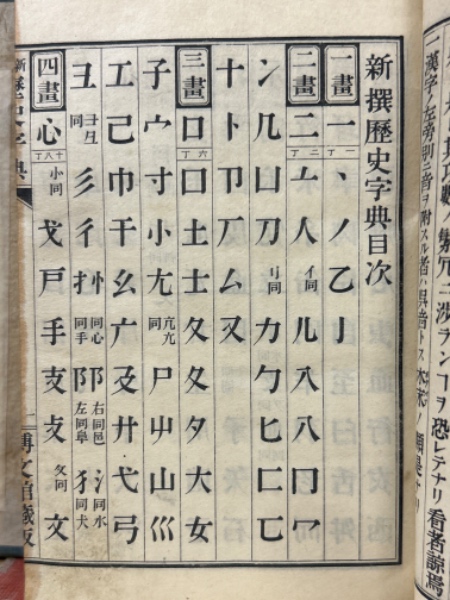 一漢字ノ左旁別ニ音ヲ附スル者ハ異音トス
新撰歷史字典目次
一畫 一丁 一丶ノ乙亅
二畫 二丁 二亠人イ同儿入八冂冖
冫几凵刀刂同力勹匕匚匸
十卜卩厂厶又
三畫 六丁 口囗土士夂夊夕大女
子宀寸小尢尣兀同尸屮山巛
工己巾干幺广廴廾弋弓
彐彑彐同彡彳忄同心扌同手阝右同邑左同阜氵同水犭同犬
四畫 十八丁 心㣺同戈戶手支攴攵同文
博文館藏版